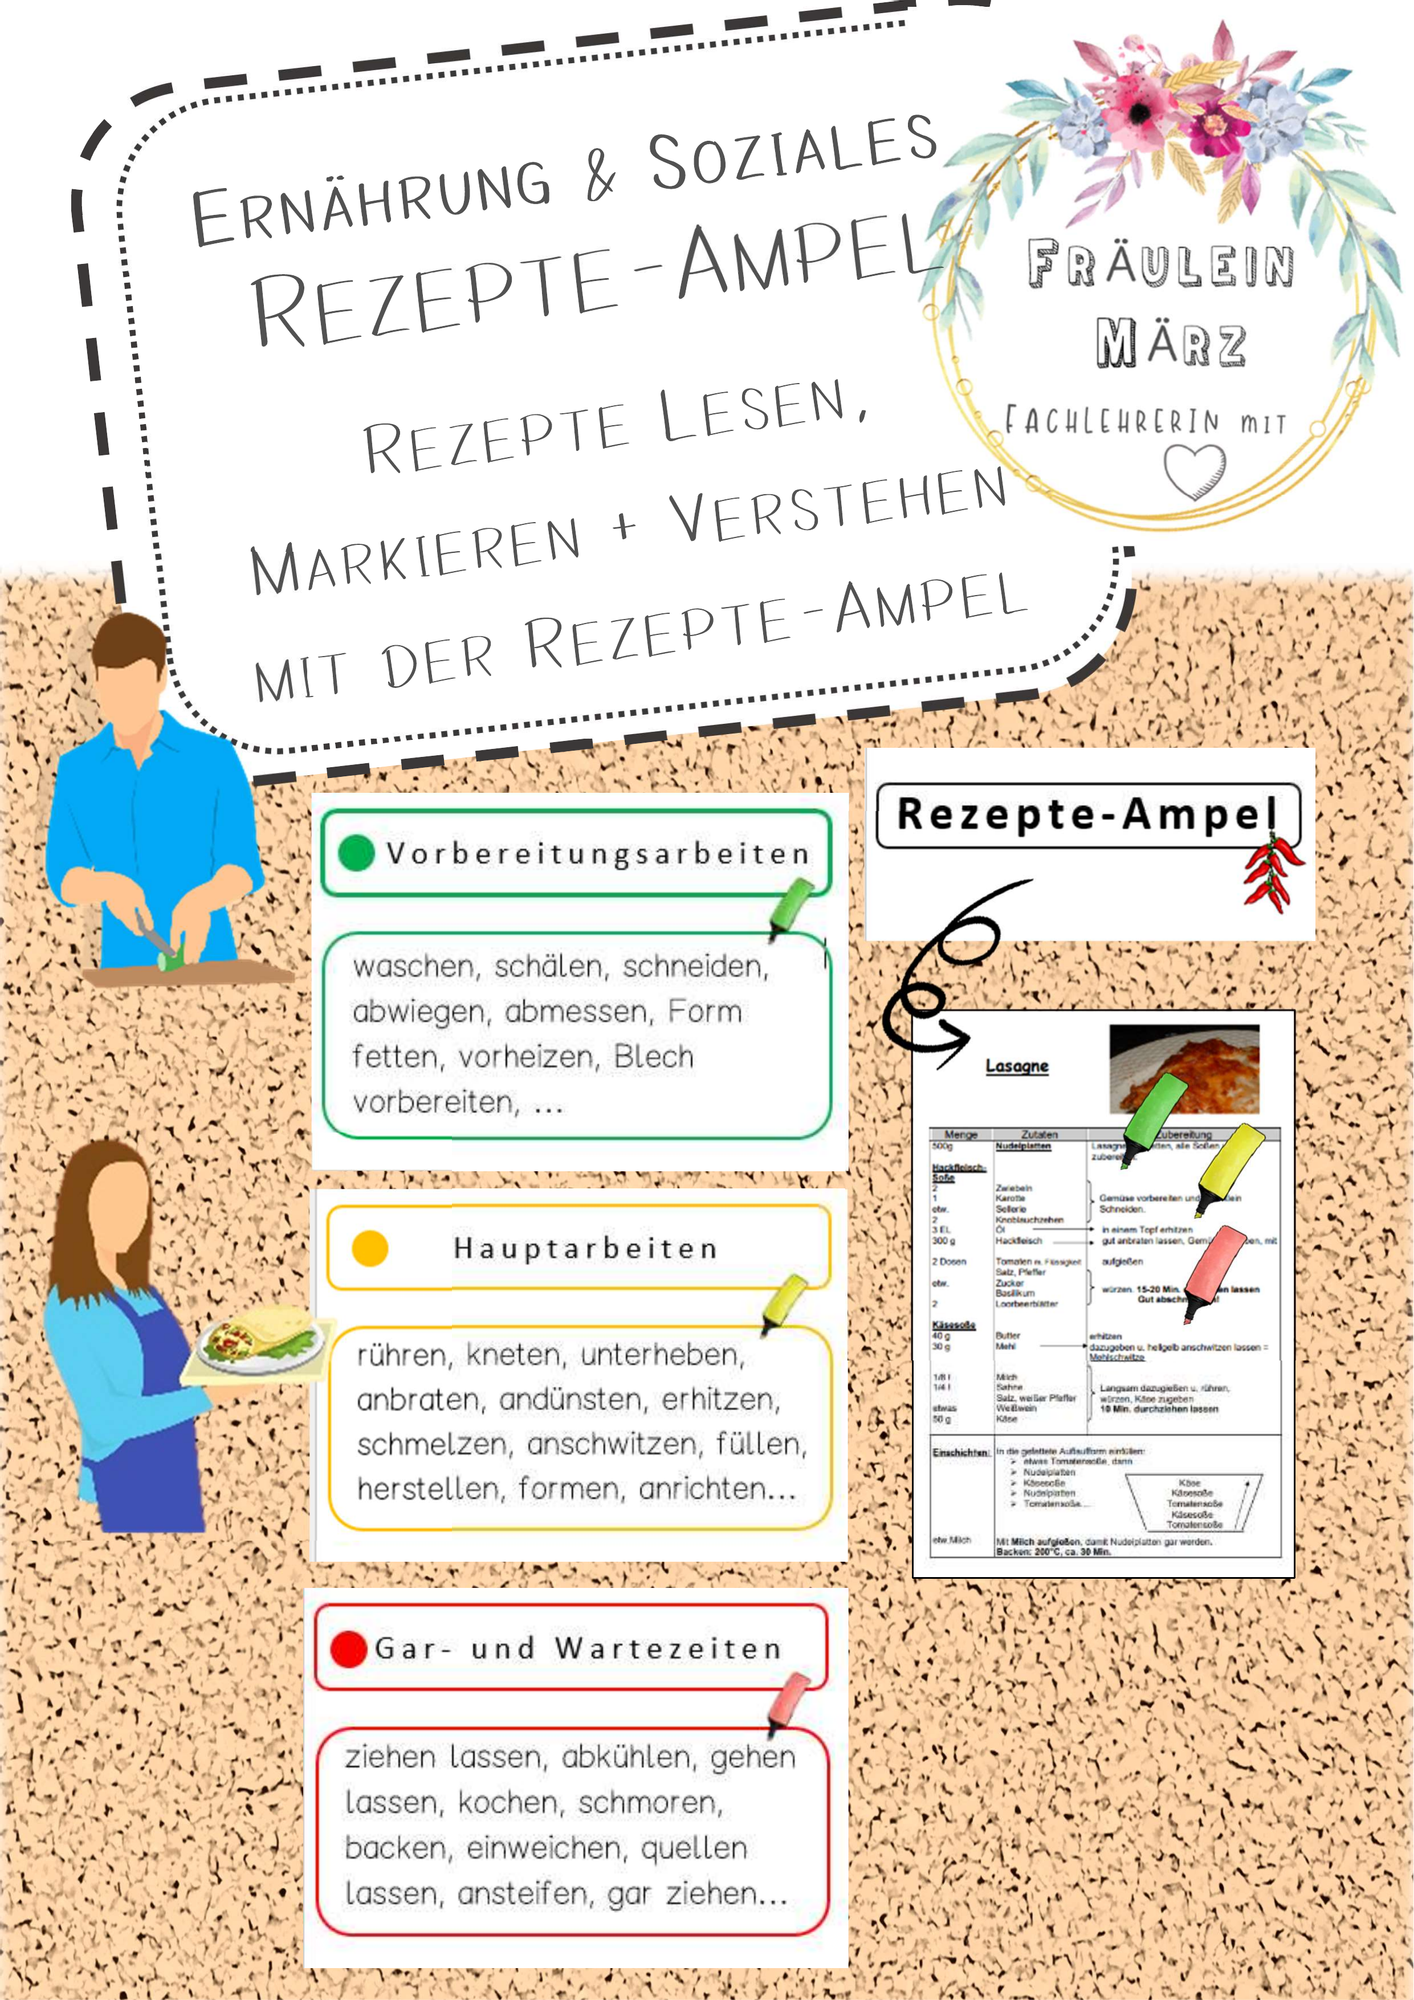 Ernährung & Soziales
Rezepte-Ampel
Rezepte Lesen,
Markieren + Verstehen
mit der Rezepte-Ampel
Fräulein
März
Fachlehrerin mit
Vorbereitungsarbeiten
waschen, schälen, schneiden,
abwiegen, abmessen, Form
fetten, vorheizen, Blech
vorbereiten, ...
Hauptarbeiten
rühren, kneten, unterheben,
anbraten, andünsten, erhitzen,
schmelzen, anschwitzen, füllen,
herstellen, formen, anrichten...
Gar- und Wartezeiten
ziehen lassen, abkühlen, gehen
lassen, kochen, schmoren,
backen, einweichen, quellen
lassen, ansteifen, gar ziehen...
Rezepte-Ampel
Lasagne
Menge Zutaten Zubereitung
500g Nudelplatten alle Soßen
Hackfleisch-
Soße
2 Zwiebeln
1 Karotte Gemüse vorbereiten und
etw. Sellerie Schneiden.
2 Knoblauchzehen
3 EL Öl in einem Topf erhitzen
300 g Hackfleisch gut anbraten lassen, mit
2 Dosen Tomaten m. Flüssigkeit aufgießen
Salz, Pfeffer
etw. Zucker würzen. 15-20 Min. lassen
Basilikum Gut
2 Loorbeerblätter
Käsesoße
40 g Butter erhitzen
30 g Mehl dazugeben u. hellgelb anschwitzen lassen =
Mehlschwitze
1/8 l Milch
1/4 l Sahne Langsam dazugießen u. rühren,
Salz, weißer Pfeffer würzen, Käse zugeben
etwas Weißwein 10 Min. durchziehen lassen
50 g Käse
Einschichten: In die gefettete Auflaufform einfüllen:
➢ etwas Tomatensoße, dann
➢ Nudelplatten
➢ Käsesoße
➢ Nudelplatten
➢ Tomatensoße....
Käse
Käsesoße
Tomatensoße
Käsesoße
Tomatensoße
etw. Milch Mit Milch aufgießen, damit Nudelplatten gar werden.
Backen: 200°C, ca. 30 Min.